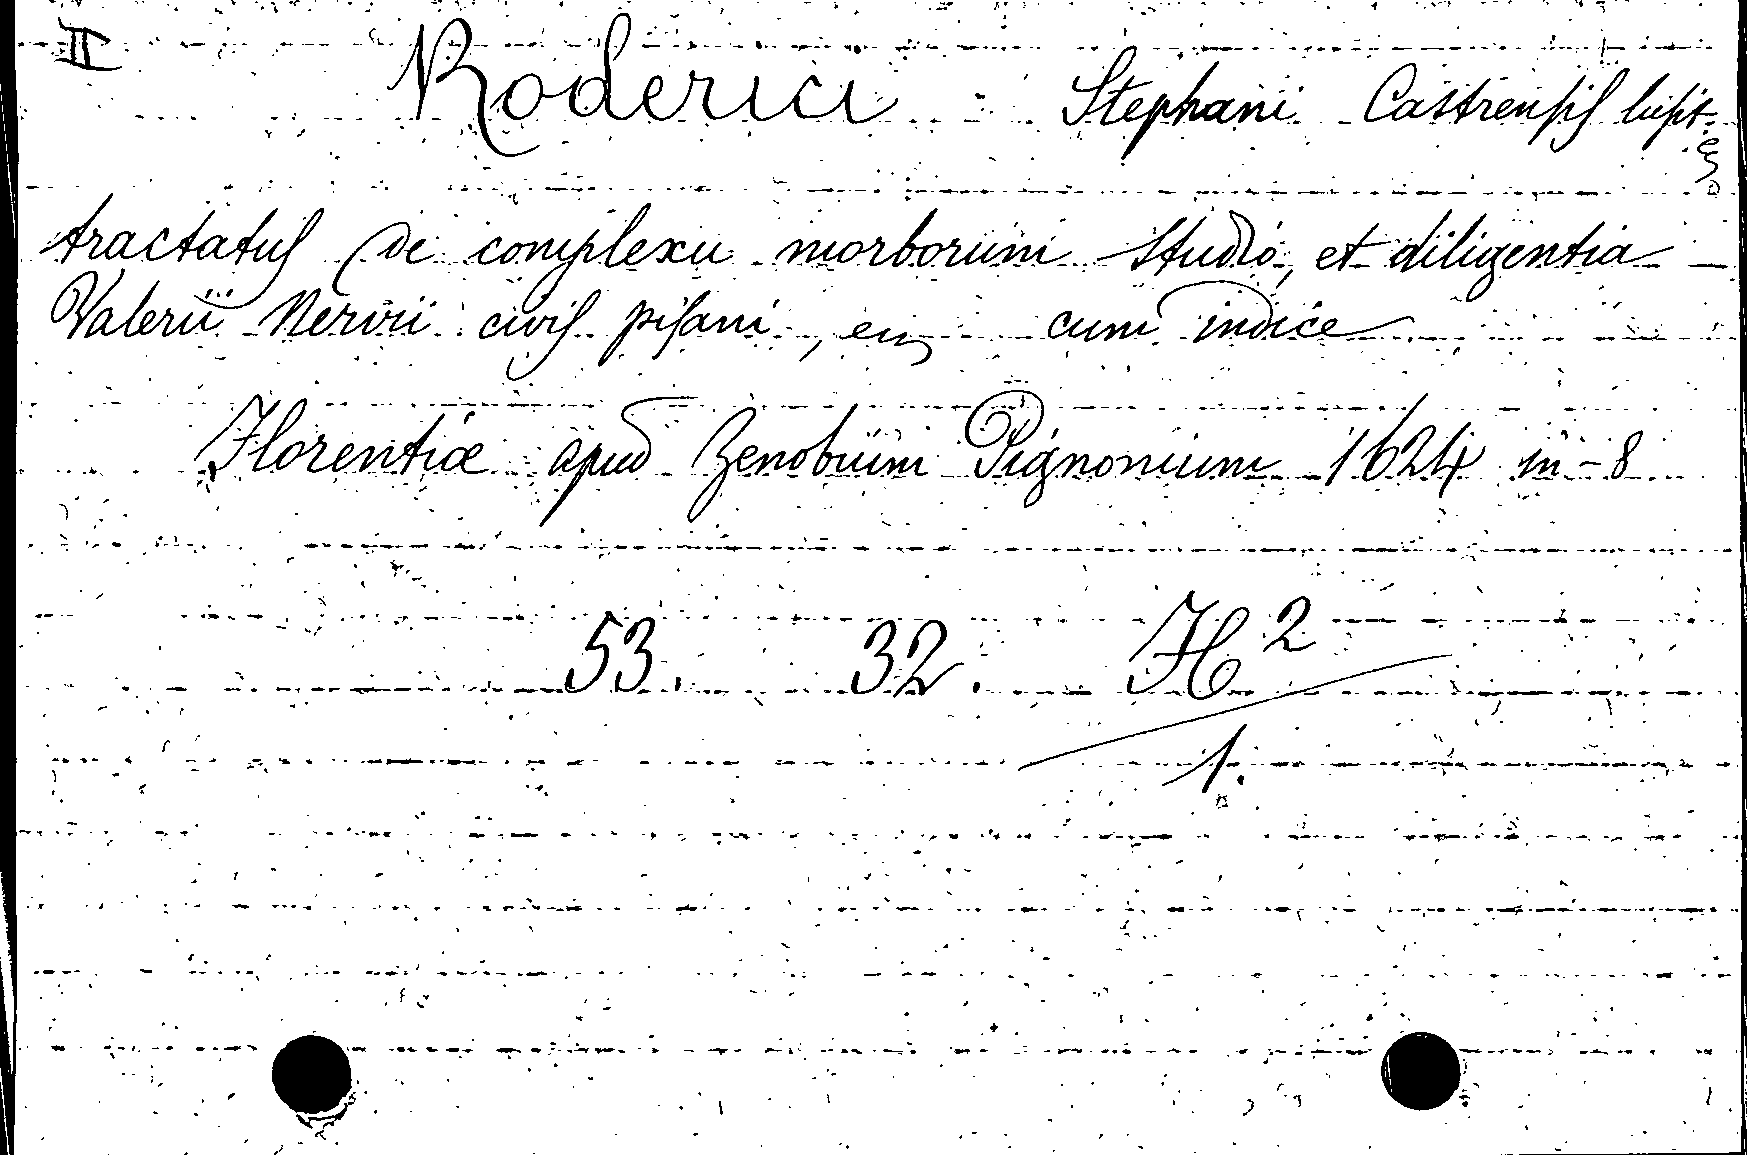 II
Roderici Stephani Castrensis lusit.
tractatus de complexu morborum studio, et diligentia
Valerii Nervii civis pisani, cum indice
Florentiæ apud Zenobium Pignonium 1624 in-8
53. 32. H²
1.